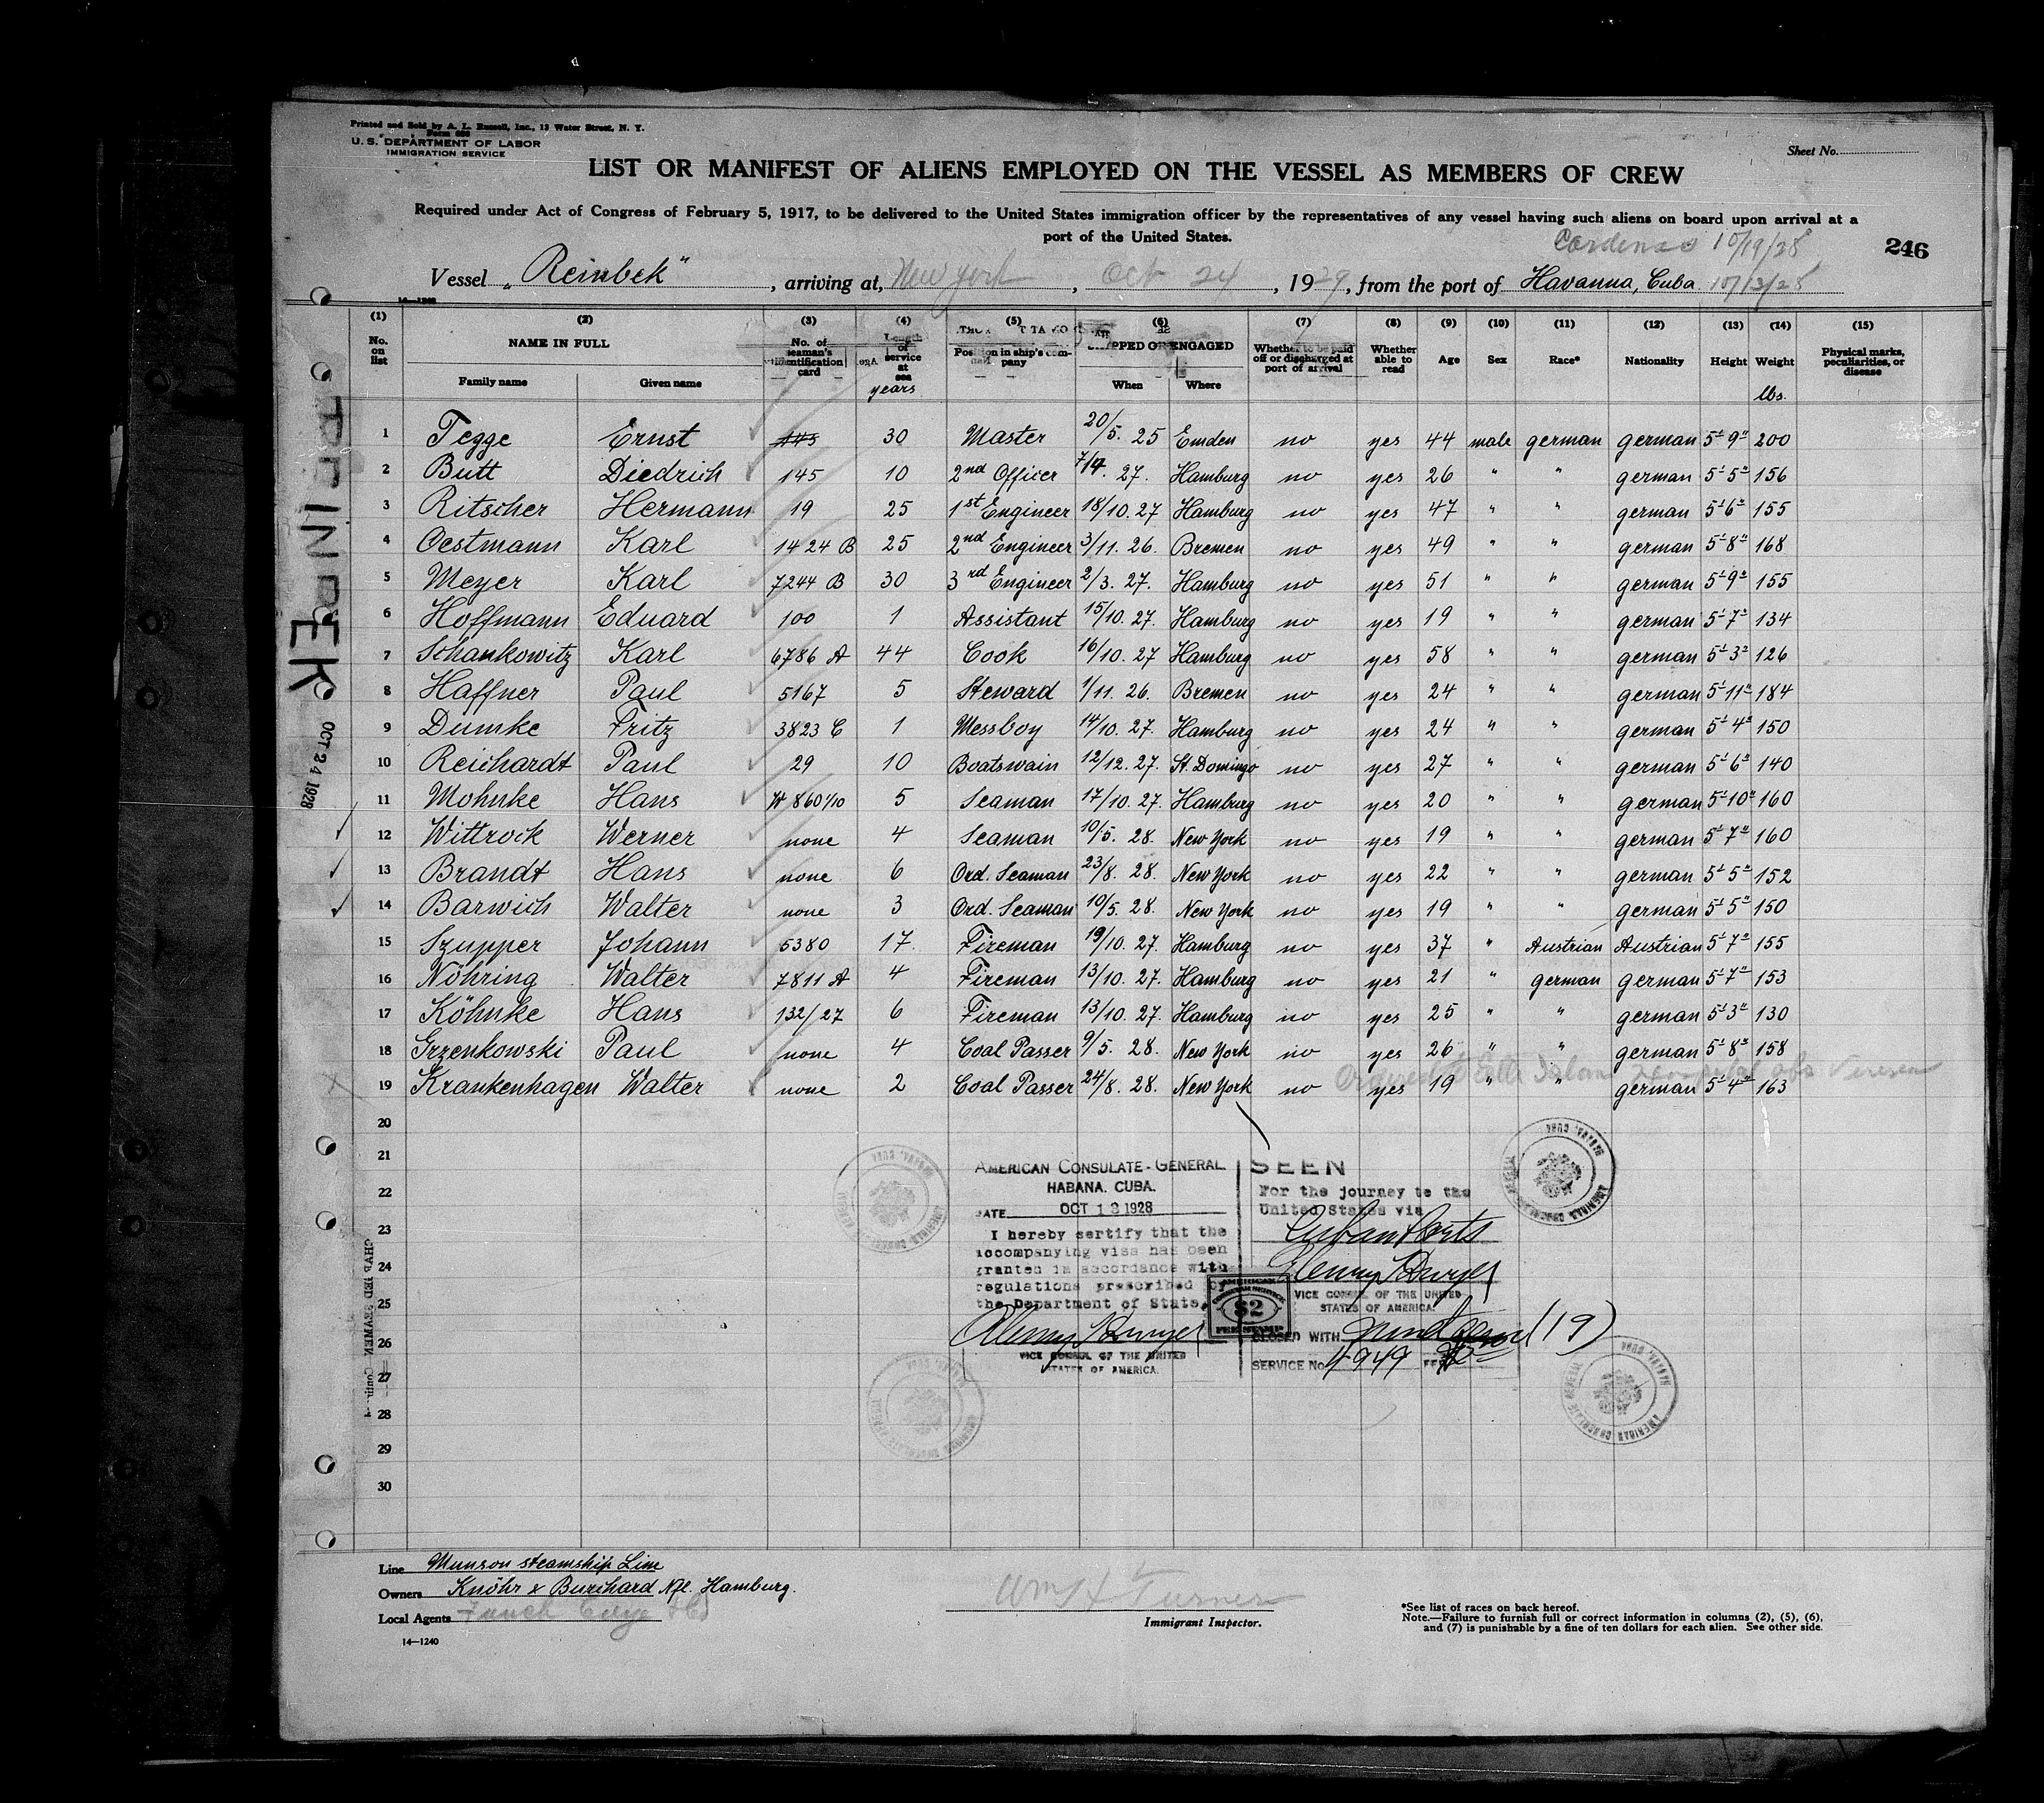 Printed and Sold by A. L. Russell, Inc., 13 Water Street, N. Y.
Form 680
U. S. DEPARTMENT OF LABOR
IMMIGRATION SERVICE
Sheet No.
LIST OR MANIFEST OF ALIENS EMPLOYED ON THE VESSEL AS MEMBERS OF CREW
Required under Act of Congress of February 5, 1917, to be delivered to the United States immigration officer by the representatives of any vessel having such aliens on board upon arrival at a
port of the United States.
Cardenas 10/19/28
246
Vessel „Reinbek“, arriving at, New York, Oct 24, 1929, from the port of Havanna, Cuba 10/13/28
(1) (2) (3) (4) (5) (6) (7) (8) (9) (10) (11) (12) (13) (14) (15)
No. on list NAME IN FULL Family name Given name No. of seaman's identification card Length of service at sea years Position in ship's company SHIPPED OR ENGAGED When Where Whether to be paid off or discharged at port of arrival Whether able to read Age Sex Race* Nationality Height Weight lbs. Physical marks, peculiarities, or disease
1 Tegge Ernst 143 30 Master 20/5. 25 Emden no yes 44 male german german 5' 9" 200
2 Butt Diedrich 145 10 2nd Officer 7/4. 27. Hamburg no yes 26 " " german 5' 5" 156
3 Ritscher Hermann 19 25 1st Engineer 18/10. 27 Hamburg no yes 47 " " german 5' 6" 155
4 Oestmann Karl 1424 B 25 2nd Engineer 3/11. 26. Bremen no yes 49 " " german 5' 8" 168
5 Meyer Karl 7244 B 30 3rd Engineer 2/3. 27. Hamburg no yes 51 " " german 5' 9" 155
6 Hoffmann Eduard 100 1 Assistant 15/10. 27. Hamburg no yes 19 " " german 5' 7" 134
7 Schankowitz Karl 6786 A 44 Cook 16/10. 27 Hamburg no yes 58 " " german 5' 3" 126
8 Haffner Paul 5167 5 Steward 1/11. 26. Bremen no yes 24 " " german 5' 11" 184
9 Dumke Fritz 3823 C 1 Messboy 14/10. 27. Hamburg no yes 24 " " german 5' 4" 150
10 Reichardt Paul 29 10 Boatswain 12/12. 27. St. Domingo no yes 27 " " german 5' 6" 140
11 Mohnke Hans W 860 1/10 5 Seaman 17/10. 27. Hamburg no yes 20 " " german 5' 10" 160
12 Wittrock Werner none 4 Seaman 10/5. 28. New York no yes 19 " " german 5' 7" 160
13 Brandt Hans none 6 Ord. Seaman 23/8. 28. New York no yes 22 " " german 5' 5" 152
14 Barwich Walter none 3 Ord. Seaman 10/5. 28. New York no yes 19 " " german 5' 5" 150
15 Szupper Johann 5380 17. Fireman 19/10. 27. Hamburg no yes 37 " Austrian Austrian 5' 7" 155
16 Nöhring Walter 7811 A 4 Fireman 13/10. 27. Hamburg no yes 21 " german german 5' 7" 153
17 Köhnke Hans 132/27 6 Fireman 13/10. 27. Hamburg no yes 25 " " german 5' 3" 130
18 Grzenkowski Paul none 4 Coal Passer 9/5. 28. New York no yes 26 " " german 5' 8" 158
19 Krankenhagen Walter none 2 Coal Passer 24/8. 28. New York no yes 19 " " german 5' 4" 163
20
21
22
23
24
25
26
27
28
29
30
REINBEK
OCT 24 1928
AMERICAN CONSULATE-GENERAL
HABANA. CUBA.
DATE OCT 13 1928
I hereby certify that the
accompanying visa has been
granted in accordance with
regulations prescribed by
the Department of State.
VICE CONSUL OF THE UNITED
STATES OF AMERICA.
SEEN
For the journey to the
United States via
Cuban Ports
VICE CONSUL OF THE UNITED
STATES OF AMERICA.
AMERICAN CONSULAR SERVICE $2 FEE STAMP
CLOSED WITH nineteen (19)
SERVICE No. 4949 FEE $2
Line Munson steamship Line
Owners Knöhr & Burchard Nfl. Hamburg.
Local Agents Funch Edye & Co
14—1240
Wm H Turner
Immigrant Inspector.
*See list of races on back hereof.
Note.—Failure to furnish full or correct information in columns (2), (5), (6),
and (7) is punishable by a fine of ten dollars for each alien. See other side.